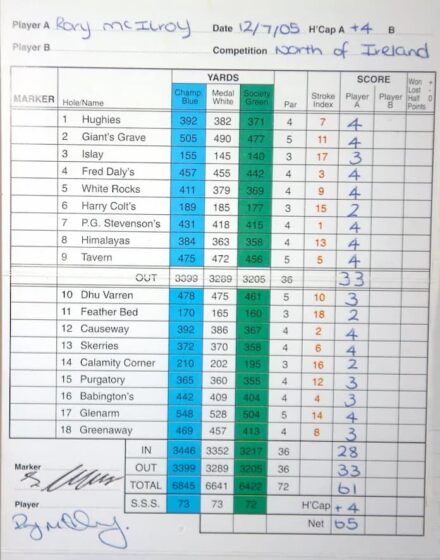 Player A Rory McIlroy Date 12/7/05 H'Cap A +4 B
Player B Competition North of Ireland
YARDS SCORE Won + Lost - Half 0 Points
MARKER Hole/Name Champ Blue Medal White Society Green Par Stroke Index Player A Player B
1 Hughies 392 382 371 4 7 4
2 Giant's Grave 505 490 477 5 11 4
3 Islay 155 145 140 3 17 3
4 Fred Daly's 457 455 442 4 3 4
5 White Rocks 411 379 369 4 9 4
6 Harry Colt's 189 185 177 3 15 2
7 P.G. Stevenson's 431 418 415 4 1 4
8 Himalayas 384 363 358 4 13 4
9 Tavern 475 472 456 5 5 4
OUT 3399 3289 3205 36 33
10 Dhu Varren 478 475 461 5 10 3
11 Feather Bed 170 165 160 3 18 2
12 Causeway 392 386 367 4 2 4
13 Skerries 372 370 358 4 6 4
14 Calamity Corner 210 202 195 3 16 2
15 Purgatory 365 360 355 4 12 3
16 Babington's 442 409 404 4 4 3
17 Glenarm 548 528 504 5 14 4
18 Greenaway 469 457 413 4 8 3
IN 3446 3352 3217 36 28
Marker OUT 3399 3289 3205 36 33
TOTAL 6845 6641 6422 72 61
Player S.S.S. 73 73 72 H'Cap +4
Net 65